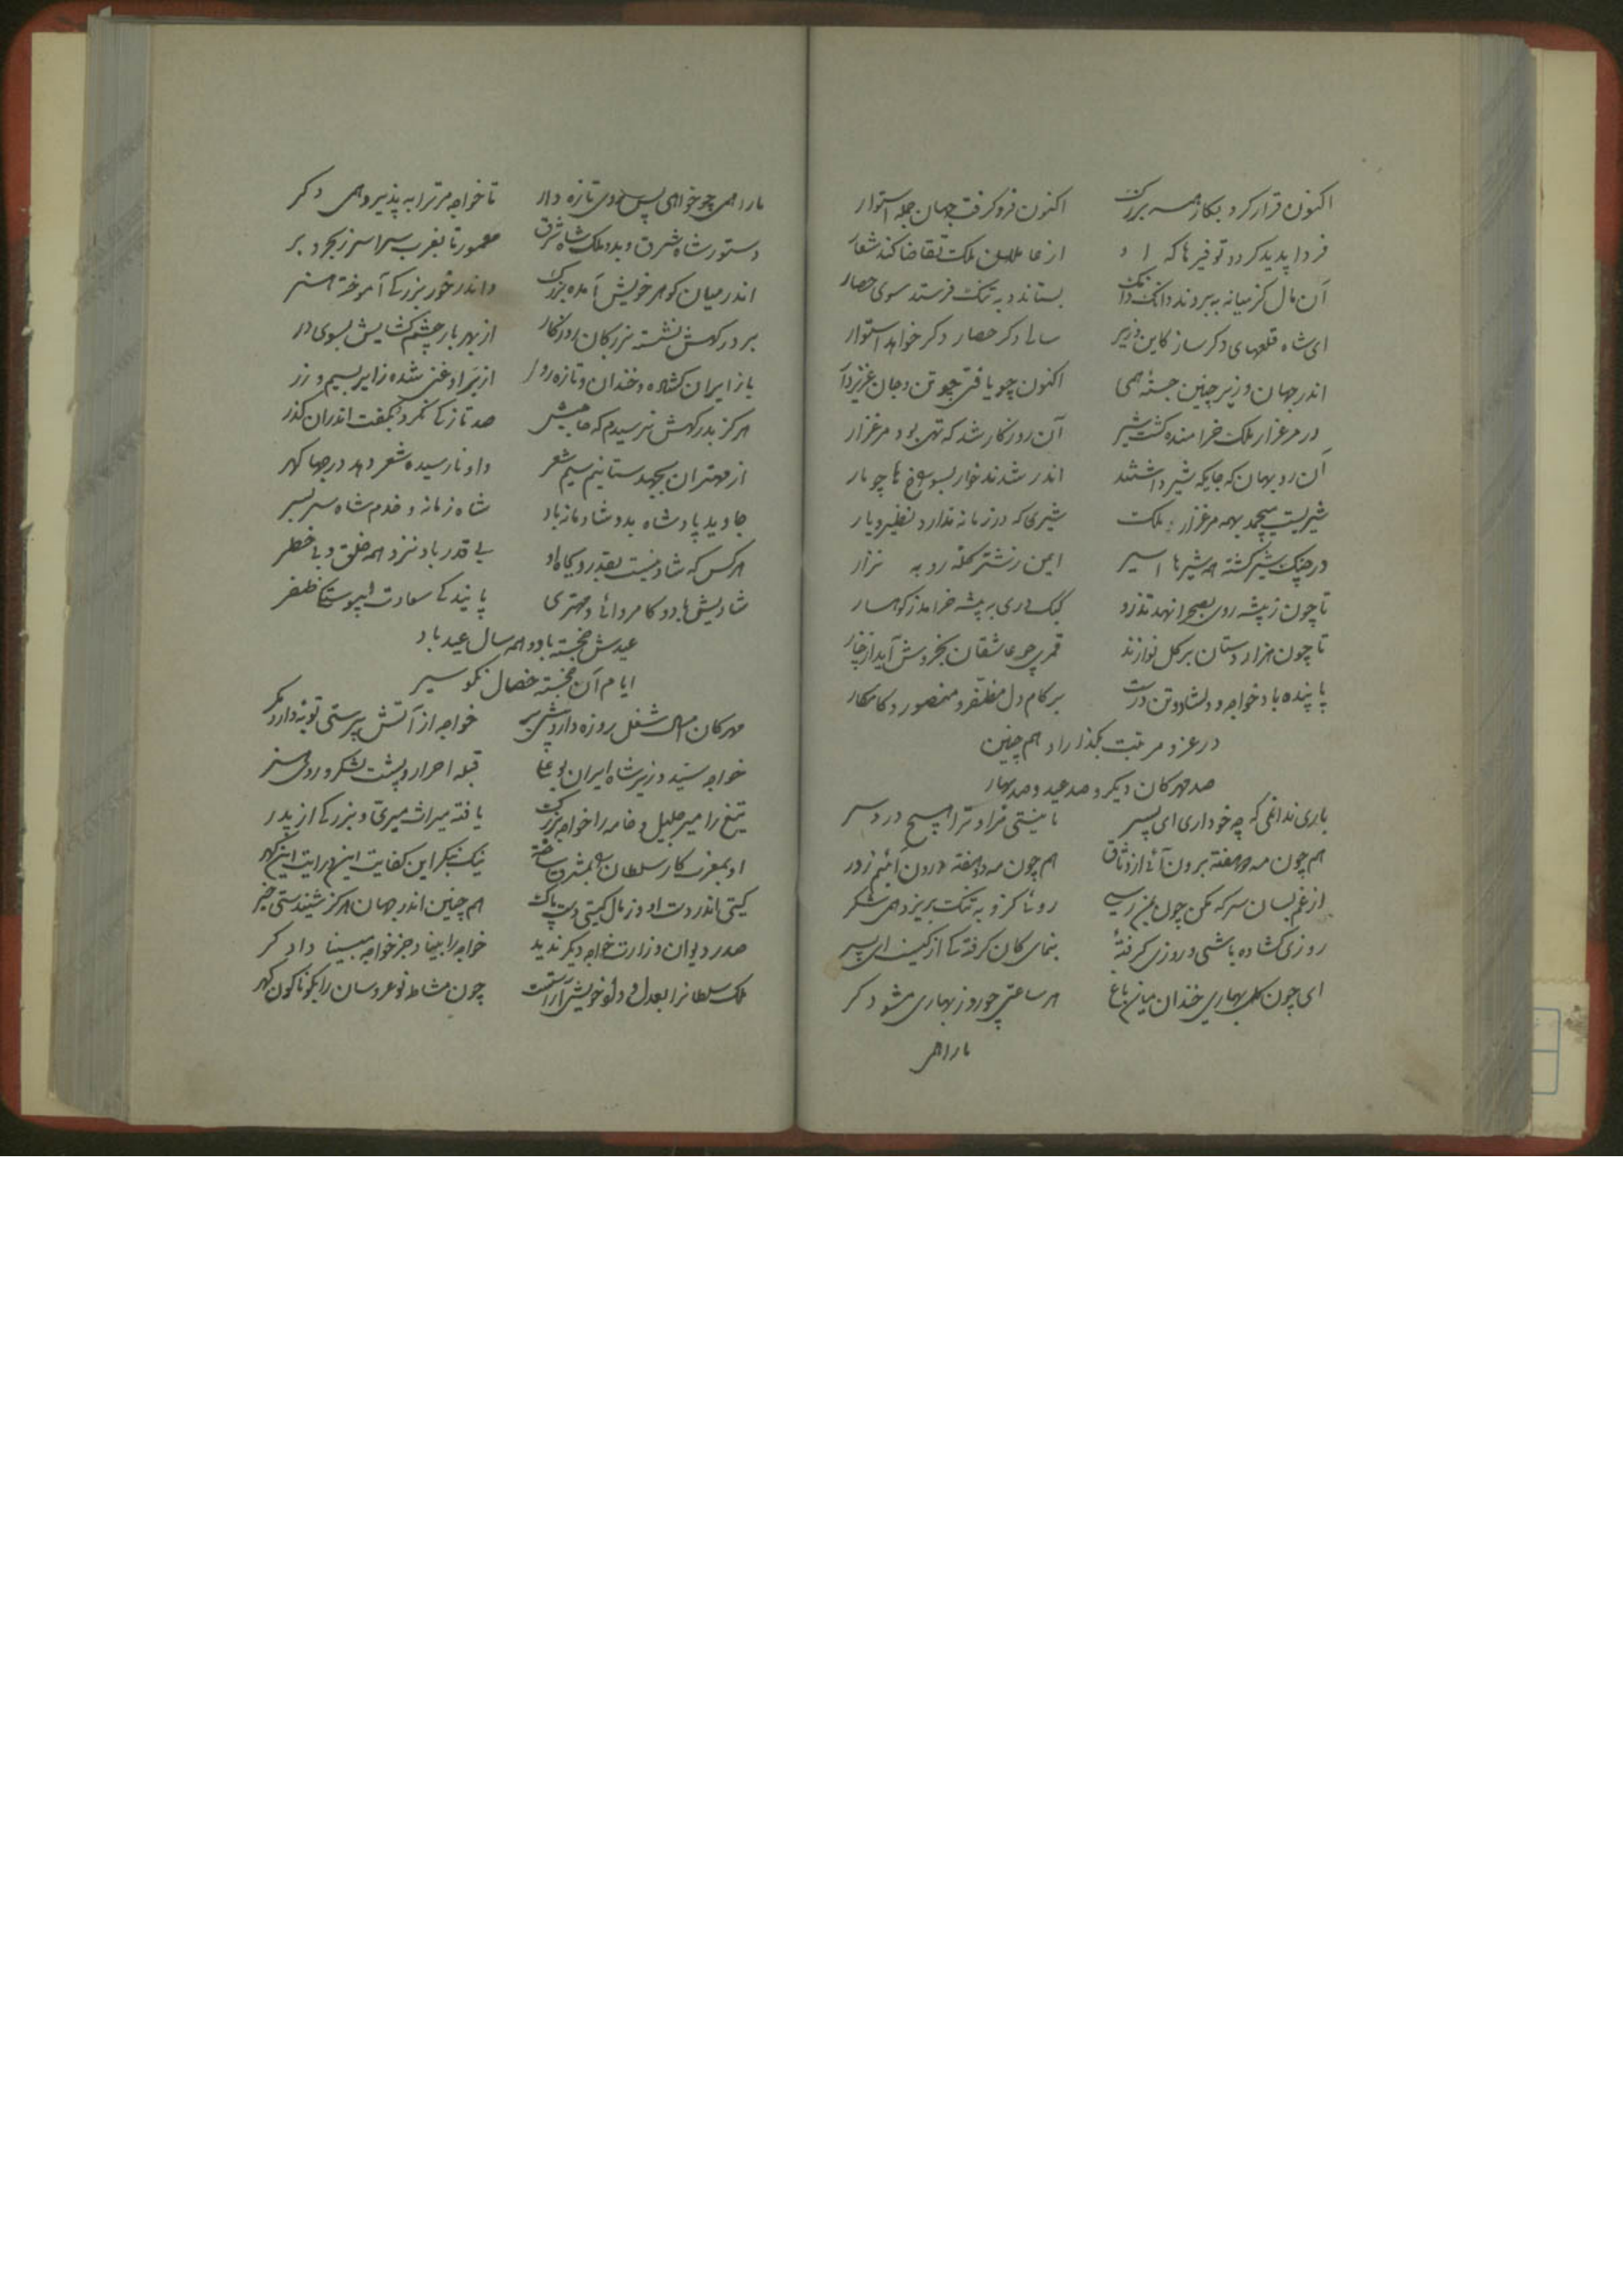 اکنون قرار کرد بکار همه بزرک اکنون فرو کرفت جهان جمله استوار
فردا پدید کردد توفیرها که او از عاملان ملکت تقاضا کند شمار
آن مال کز میانه ببردند دانک دانک بستاند و به تنک فرستد سوی حصار
ای شاه قلعهای دکر ساز کاین وزیر سالی دکر حصار دکر خواهد استوار
اندر جهان وزیر چنین جستهٔ همی اکنون چو یافتی چو تن و جان عزیز دار
در مرغزار ملک خرامنده کشت شیر آن روزکار شد که تهی بود مرغزار
آن روبهان که جایکه شیر داشتند اندر شدند خوار بسوراخها چو مار
شیریست بهمه مرغزار ملکت شیری که در زمانه ندارد نظیر و یار
در چنک شیر کشته همه شیرها اسیر ایمن زشتر کله روبه نزار
تا چون ز بیشه روی بصحرا نهد تذرو کبک دری به بیشه خرامد ز کوهسار
تا چون هزار دستان بر کل نوا زند قمری چو عاشقان بخروش آید از چنار
پاینده باد خواجه و دلشاد و تن درست بر کام دل مظفر و منصور و کامکار
در عز و مرتبت بکذاراد هم چنین
صد مهرکان دیکر و صد عید و صد بهار
باری ندانمی که چه خو داری ای پسر تا نیستی مرا و ترا هیچ درد سر
هم چون مه دو هفته برون آئی از وثاق هم چون مه دو هفته درون آئیم ز در
از غم بسان سرکه مکن چون من رسی روئی کزو به تنک بریزد همی شکر
روزی کشاده باشی و روزی کرفتهٔ بنمای کان کرفتکی از کیست ای پسر
ای چون کل بهاری خندان میان باغ هر ساعتی چو روز بهاری مشو دکر
ما را همی
ما را همی چو خواهی پس روی تازه دار تا خواجه مر ترا به پذیرد همی دکر
دستور شاه شرق و بدو ملک شاه شرق معمور تا بغرب سراسر ز بحر و بر
اندر میان کوهر خویش آمده بزرک واندر خور بزرکی آموخته هنر
بر درکهش نشسته بزرکان روزکار از بهر بار چشم کشایش بسوی در
باز ایران کشاده و خندان و تازه رو از بر او غنی شده زایر بسیم و زر
هرکز بدرکهش نرسیدم که حاجبش صد تازکی نکرد و نکفت اندران کذر
از مهتران بجهد ستانیم سیم شعر واو نارسیده شعر دهد درجها کهر
جاوید پادشاه بدو شادمانه باد شاه زمانه و خدم شاه سر بسر
هر کس که شاد نیست بقدر و بکاه او بی قدر باد نزد همه خلق و بی خطر
شادیش باد و کامروائی و مهتری پایندکی سعادت و پیوستکی ظفر
عیدش خجسته باد و همه سال عید باد
ایام آن خجسته خصال نکو سیر
مهرکان امسال شغل روزه دارد پیش در خواجه از آتش پرستی توبه دارد مکر
خواجه سید وزیر شاه ایران بوعلی قبله احرار و پشت لشکر و روی هنر
تیغ را میر جلیل و خامه را خواجه بزرک یافته میراث میری و بزرکی از پدر
او بمغرب کار سلطان بمشرق ساخته نیک بنکر این کفایت این درایت این هنر
کیتی اندر دست او وز مال کیتی دست پاک هم چنین اندر جهان هرکز شنیدستی خبر
صدر دیوان وزارت خواجه دیکر ندید خواجه را بیناد جز خواجه مبیناد دکر
ملک سلطانرا بعدل و داد خویش آراست چون مشاطه نو عروسان را بکوناکون کهر